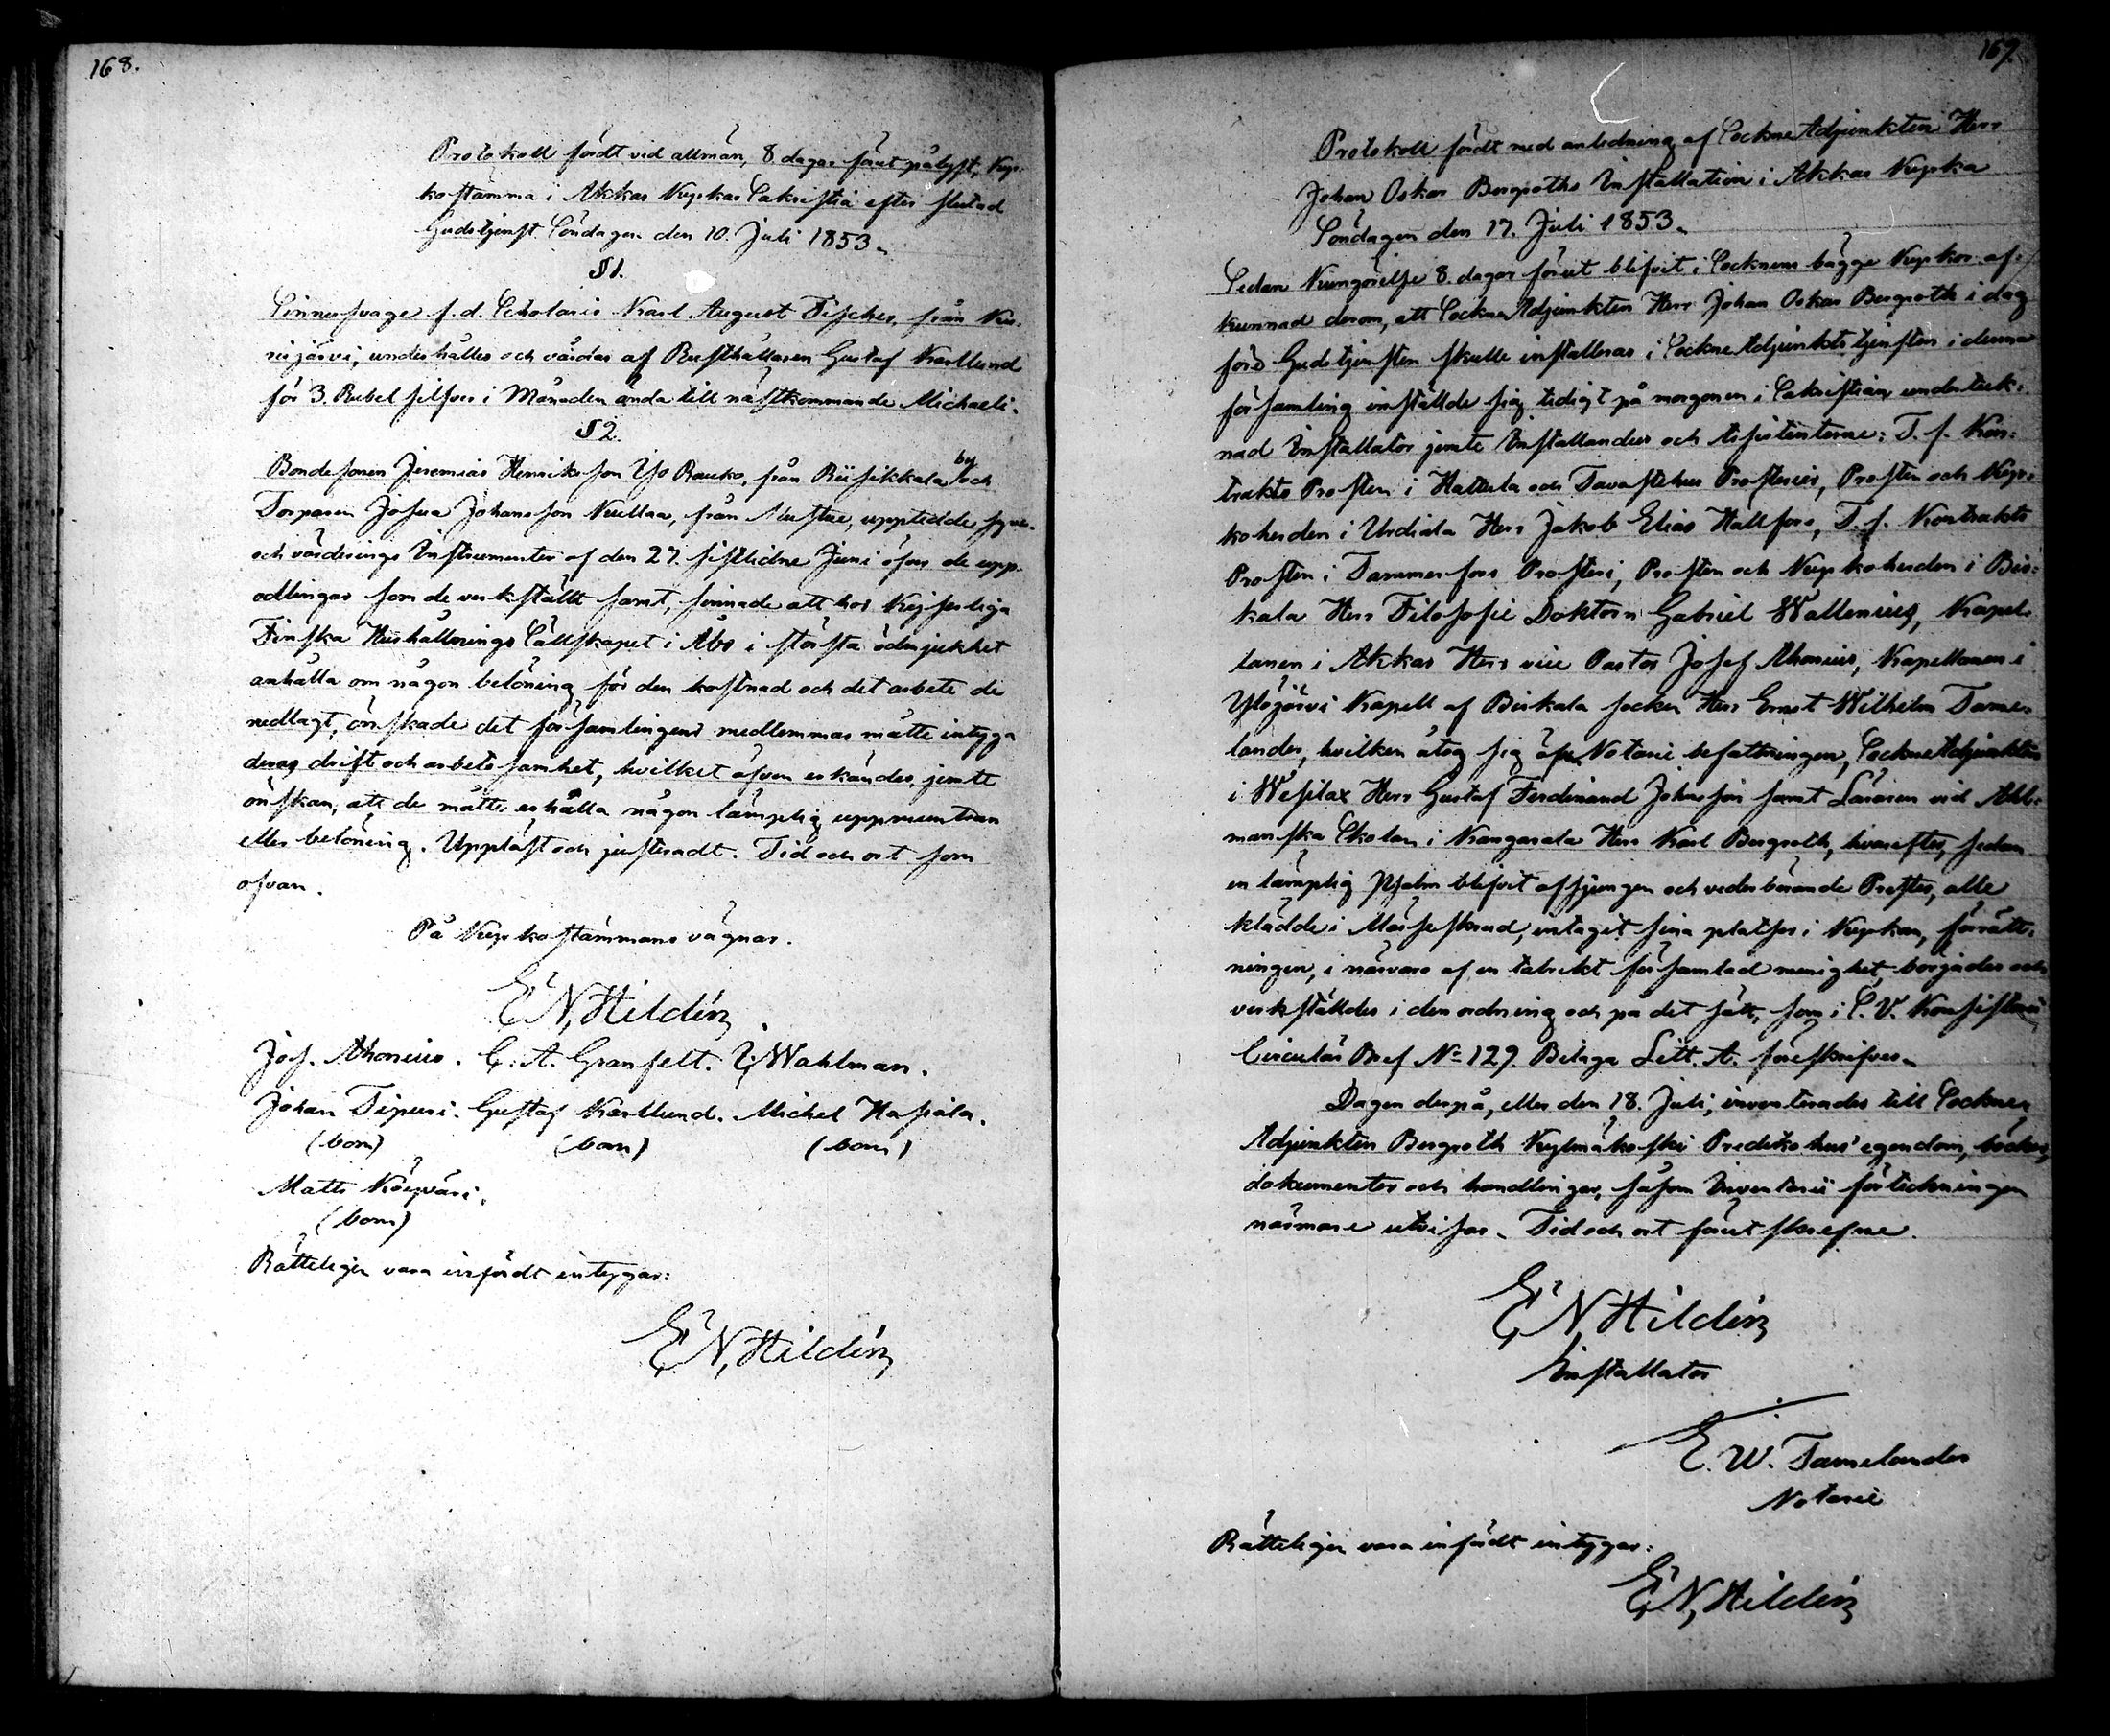 168.
Protokoll fördt vid allmän, 8 dagar förut pålyst, Kyr-
kostämma i Akkas Kyrkas Sakristia efter slutad
Gudstjenst Söndagen den 10. Juli 1853.
§ 1.
Sinnessvage f. d. Scholaris Karl August Fischer, från Ku-
risjärvi, underhålles och vårdas af Rusthållaren Gustaf Karllund
för 3. Rubel silfver i Månaden ända till nästkommande Michaeli.
§ 2.
Bondesonen Jeremias Henriksson Yso Rauko, från Riisikkala by och
Torparen Josua Johansson Kuullaa, från Nustue, uppteedde syne-
och värderings Instrumenter af den 27. sistlidne Juni öfver de upp-
odlingar som de verkställt samt, sinnade att hos Kejserliga
Finska Hushållnings Sällskapet i Åbo i största ödmjukhet
anhålla om någon belöning för den kostnad och det arbete de
nedlagt, önskade det församlingens medlemmar måtte intyga
deras drift och arbetsamhet, hvilket äfven erkändes, jemte
önskan, att de måtte erhålla någon lämplig uppmuntran
eller belöning. Uppläst och justeradt. Tid och ort som
ofvan.
På Kyrkostämmans vägnar.
E N, Hildén
Jos. Ahonius. C. A. Granfelt. I. Wahlman.
Johan Tipuri. Gustaf Karllund. Michel Hapiala.
(bom) (bom) (bom)
Matts Körpväri.
(bom)
Rätteligen vara infördt intygar:
E N, Hildén
169.
Protokoll fördt med anledning af Sockne Adjunkten Herr
Johan Oskar Bergroths Installation i Akkas Kyrka
Söndagen den 17. Juli 1853.
Sedan Kungörelse 8. dagar förut blifvit i Socknens bägge Kyrkor af-
kunnad derom, att Sockne Adjunkten Herr Johan Oskar Bergroth i dag
före Gudstjensten skulle installeras i Sockne Adjunkts tjensten i denna
församling inställde sig tidigt på morgonen i Sakristian underteck-
nad Installator jemte Installandus och Assistenterne: T. f. Kon-
trakts Prosten i Hattula och Tavastehus Prosterier, Prosten och Kyr-
koherden i Urdiala Herr Jakob Elias Hallfors, T. f. Kontrakts
Prosten i Tammerfors Prosteri, Prosten och Kyrkoherden i Bir-
kala Herr Filosofie Doktorn Gabriel Wallenius, Kapel-
lanen i Akkas Herr vice Pastor Josef Ahonius, Kapellanen i
Ylöjärvi Kapell af Birkala socken Herr Ernst Wilhelm Tame-
lander, hvilken åtog sig äfven Notarie befattningen, Sockne Adjunkten
i Wesilax Herr Gustaf Ferdinand Johnsson samt Läraren vid Ahl-
manska Skolan i Kangasala Herr Karl Bergroth, hvarefter, sedan
en lämplig Psalm blifvit afsjungen och vederbörande Prester, alle
klädde i Mässeskrud, intagit sina platser i Kyrkan, förrätt-
ningen, i närvaro af en talrikt församlad menighet, börjades och
verkställdes i den ordning och på det sätt, som i E. V. Konsistorii
Circulär Bref No 129. Bilaga Litt. A. föreskrifves.
Dagen derpå, eller den 18. Juli, inventerades till Sockne
Adjunkten Bergroth Kylmäkoski Predikohus' egendom, böcker,
dokumenter och handlingar, såsom Inventarii förteckningen
närmare utvisar. Tid och ort förut skrefne.
E N, Hildén
Installator
E. W. Tamelander
Notarie
Rätteligen vara infördt intygar:
E N, Hildén